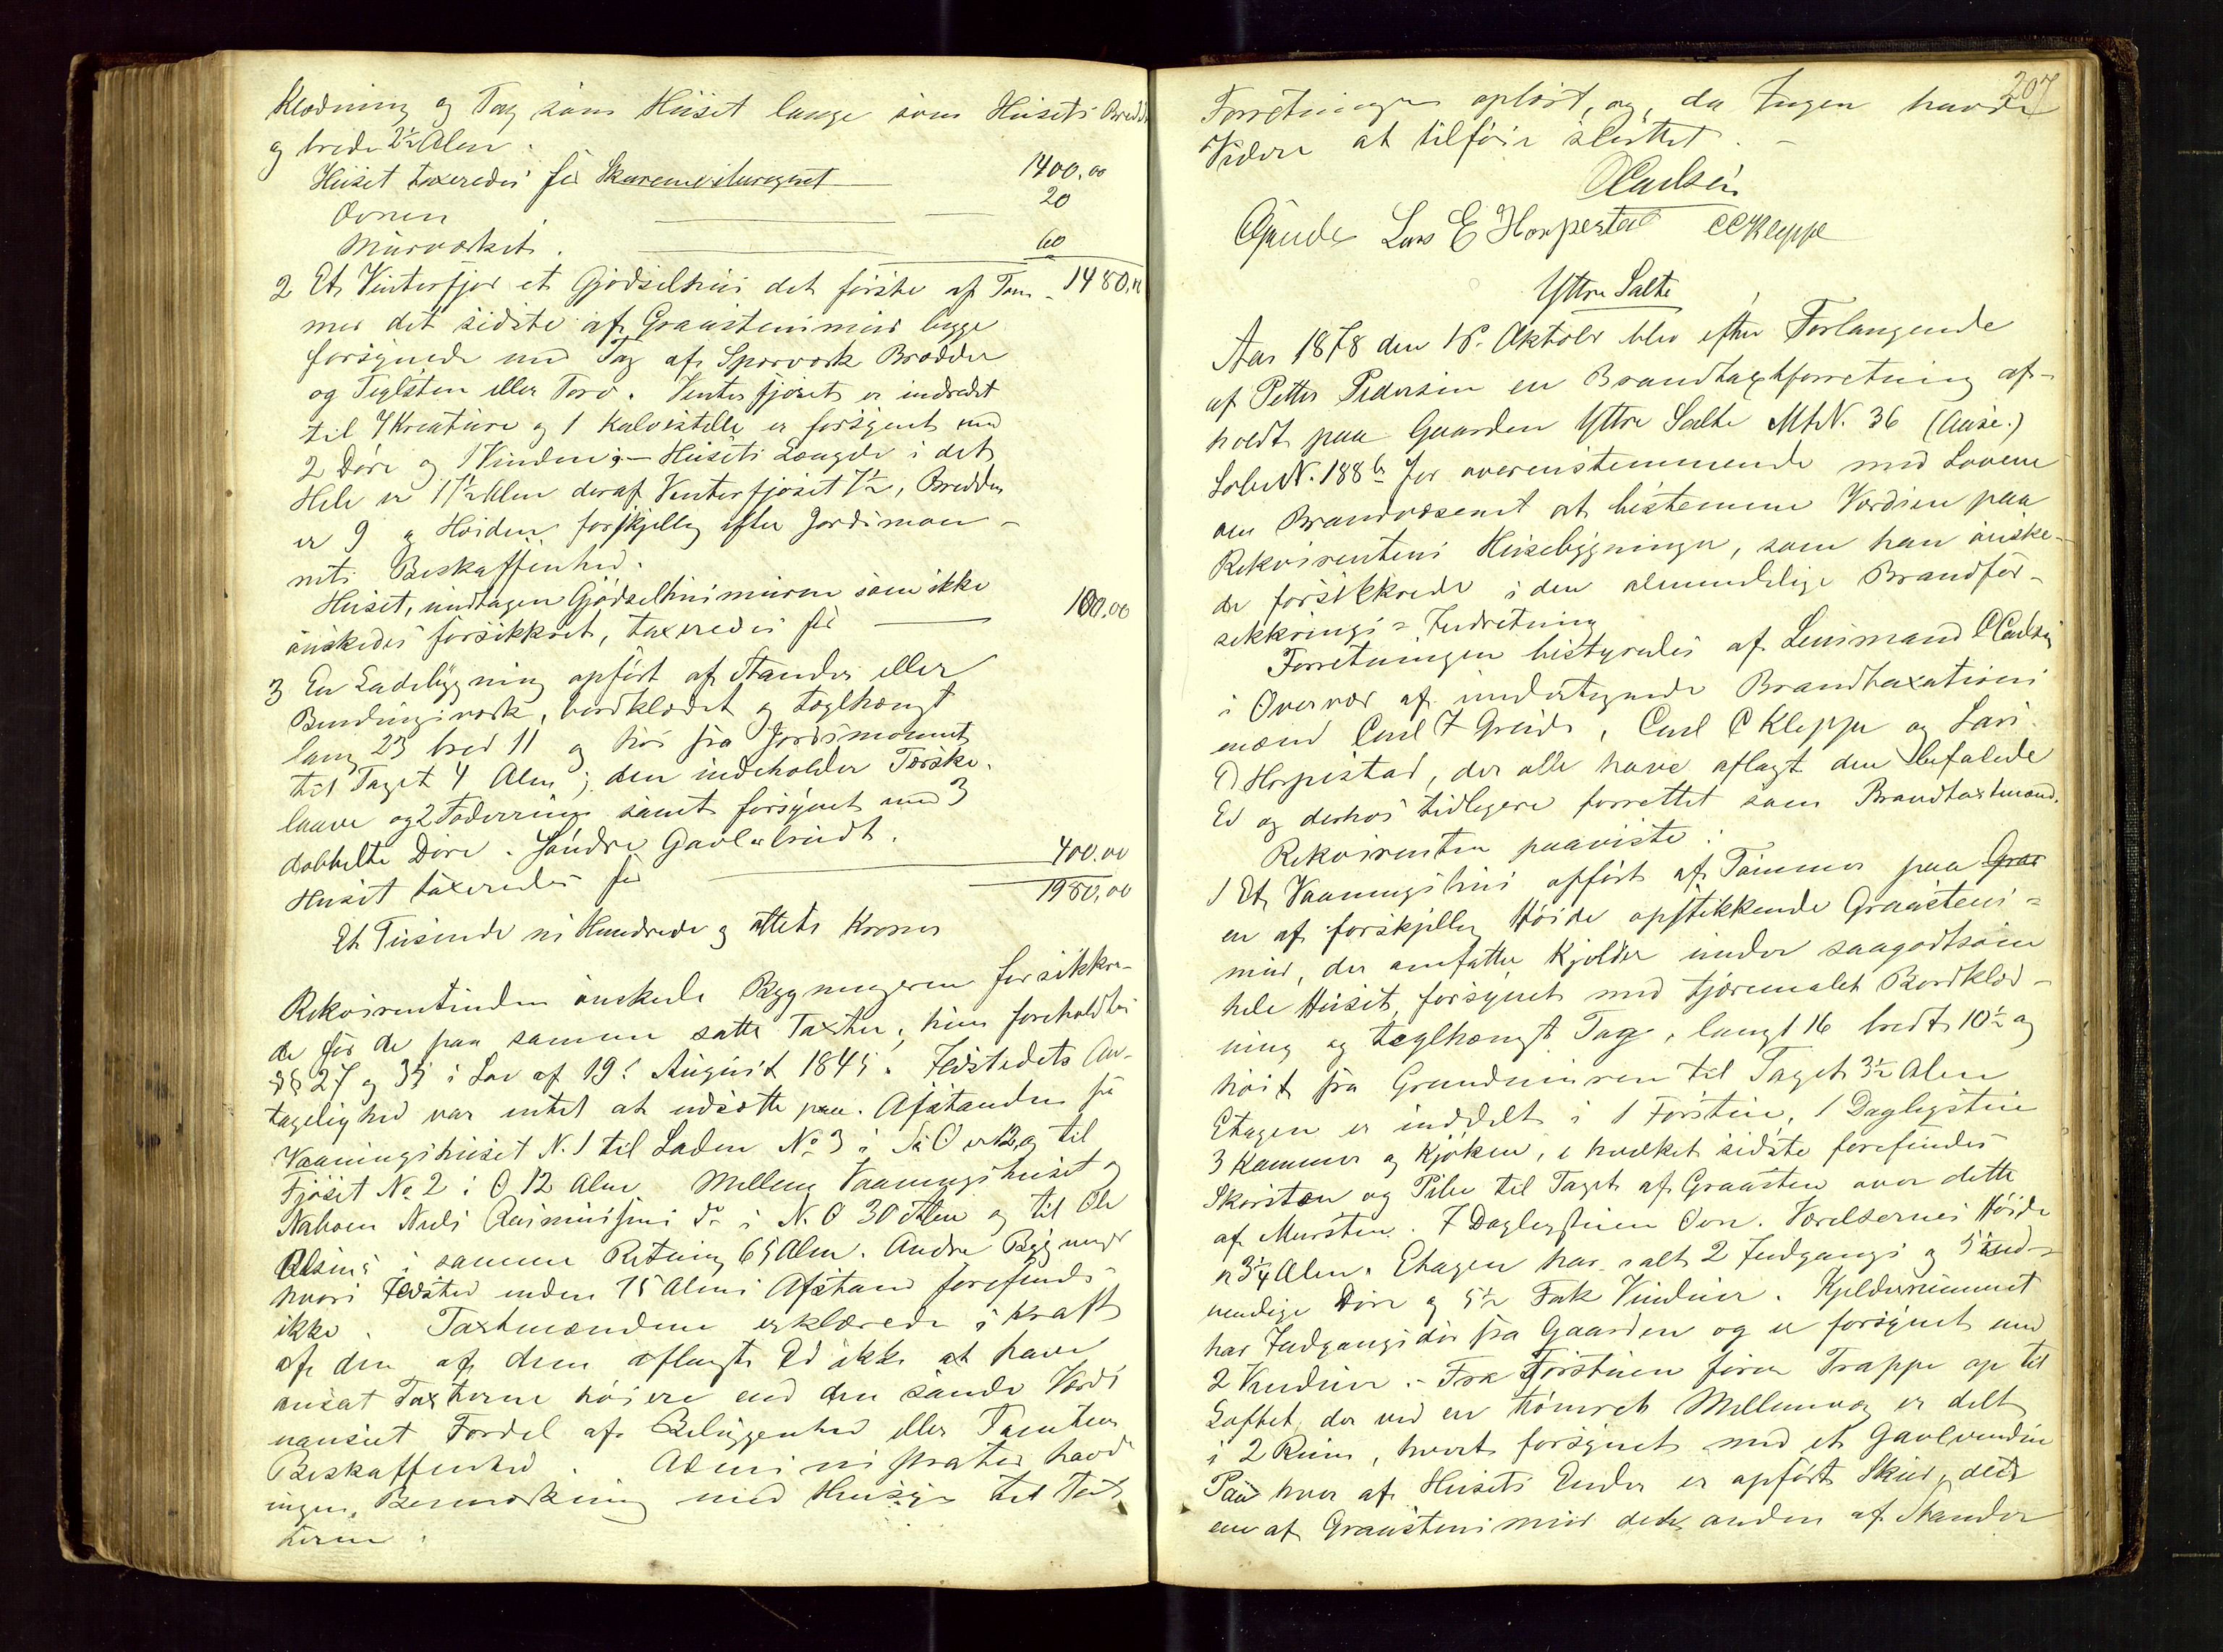 Klædning og Tag som Huset lange som Husets Bredde
og brede 2½ Alen.
Huset taxeredes for Skuremedberegnet 1400.00
Ovnen 20
Murværket. 60
1480,00
2 Et Vinterfjøs et Gjødselhus det første af Tøm-
mer det sidste af Graastensmur begge
forsynede med Tag af Sperværk Brædder
og Teglsten eller Torv. Vinterfjøset er indredet
til 7 Kreature og 1 Kalvestelle er forsynet med
2 Døre og 1 Vindue; – Husets Længde i det
Hele er 17½ Alen deraf Vinterfjøset 7½, Bredden
er 9 og Høiden forskjellig efter Jordsmon-
nets Beskaffenhed.
Huset, undtagen Gjødselhusmuren som ikke
ønskedes forsikkret, taxeredes for 100.00
3 En Ladebygning opført af Stander eller
Bindingsværk, bordklædet og teglhængt
lang 23 bred 11 og høi fra Jordsmonnet
til Taget 4 Alen; den indeholder Tørske-
laave og 2 Foderrum samt forsynet med 3
dobbelte Døre. Søndre Gavl
Huset taxeredes for 400.00
1980,00
Et Tusende ni Hundrede og ottets Kroner
Rekvirentinden ønskede Bygningerne forsikkre-
de for de paa samme satte Taxter, hun foreholdtes
§§ 27 og 35 i Lov af 19. August 1845. Ildstedets An-
tagelighed var intet at udsætte paa. Afstanden fra
Vaaningshuset N. 1 til Laden No 3 i S. O er 12 og til
Fjøset No 2 i O 12 Alen. Mellem Vaaningshuset og
Naboen Niels Rasmussens do i N. O 30 Alen og til Ole
Olsens i samme Retning 65 Alen. Andre Bygninger
hvori Ildsted inden 75 Alens Afstand forefindes
ikke. Taxtmændene erklærede i Kraft
af den af dem aflagte Ed ikke at have
ansat Taxterne høiere end den sande Værdi
uanseet Fordel af Beliggenhed eller Tomtens
Beskaffenhed. Administrator havde
ingen Bemærkning med Hensyn til Tax-
terne.
207
Forretningen oplæst, og, da Ingen havde
Videre at tilføie sluttet. –
OCarlsen
Lars E Horpestad CCKleppe
Yttre Salte
Aar 1878 den 18. Oktober blev efter Forlangende
af Petter Pedersen en Brandtaxtforretning af-
holdt paa Gaarden Yttre Salte MtN. 36 (Aase.)
LøbeN. 188 b for overensstemmende med Lovene
om Brandvæsenet at bestemme Værdien paa
Rekvirentens Husebygninger, som han ønske-
de forsikkrede i den almindelige Brandfor-
sikkrings-Indretning
Forretningen bestyredes af Lensmand OCarlsen
i Overvær af undertegnede Brandtaxations
mænd Carl F Grude, Carl C Kleppe og Lars
E Horpestad, der alle have aflagt den befalede
Ed og derhos tidligere forrettet som Brandtaxtmænd.
Rekvirenten paaviste:
1 Et Vaaningshus opført af Tømmer paa Graa
en af forskjellig Høide opstikkende Graastens-
mur, der omfatter Kjelder under saagodtsom
hele Huset, forsynet med tjæremalet Bordklæd-
ning og teglhængt Tag, langt 16 bredt 10½ og
høit fra Grundmuren til Taget 3½ Alen
Etagen er inddelt i 1 Forstue, 1 Dagligstue
3 Kammer og Kjøken, i hvilket sidste forefindes
Skorsten og Pibe til Taget af Graasten over dette
af Mursten. I Dagligstuen Ovn. Værelsernes Høide
er 3¼ Alen. Etagen har ialt 2 Indgangs og 5 ind-
vendige Døre og 5½ Fak Vinduer. Kjelderrummet
har Indgangsdør fra Gaarden og er forsynet med
2 Vinduer. – Fra Forstuen fører Trappe op til
Loftet, der ved en tømret Mellemvæg er delt
i 2 Rum, hvert forsynet med et Gavlvindue
Paa hver af Husets Ender er opført Skur, det
ene af Graastensmur det anden af Stander